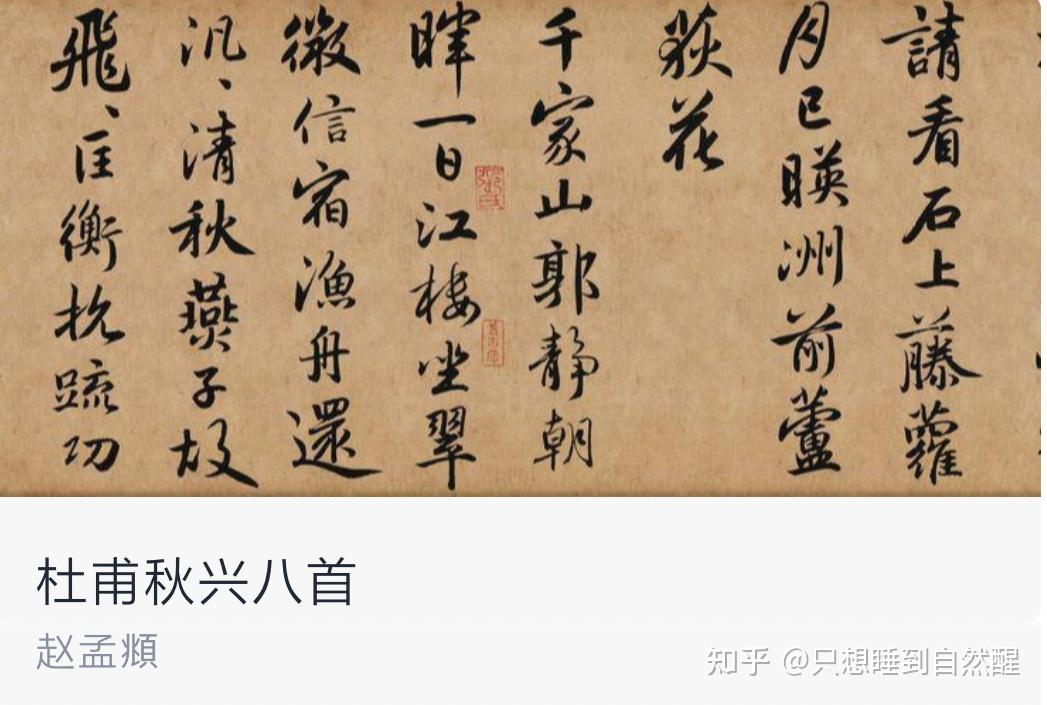 請看石上藤蘿
月已暎洲前蘆
荻花
千家山郭靜朝
暉一日江樓坐翠
微信宿漁舟還
汎、清秋燕子故
飛、匡衡抗疏功
杜甫秋兴八首
赵孟頫
知乎 @只想睡到自然醒